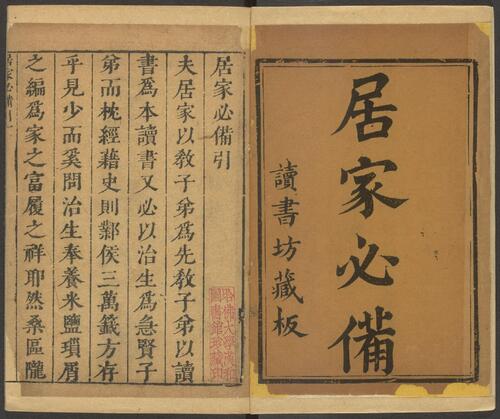 居家必備
讀書坊藏板
居家必備引
夫居家以教子弟爲先教子弟以讀
書爲本讀書又必以治生爲急賢子
弟而枕經藉史則鄴侯三萬籤方存
乎見少而奚問治生奉養米鹽瑣屑
之編爲家之富履之祥耶然桑區隴
居家必備引
哈佛大學漢和
圖書館珍藏印